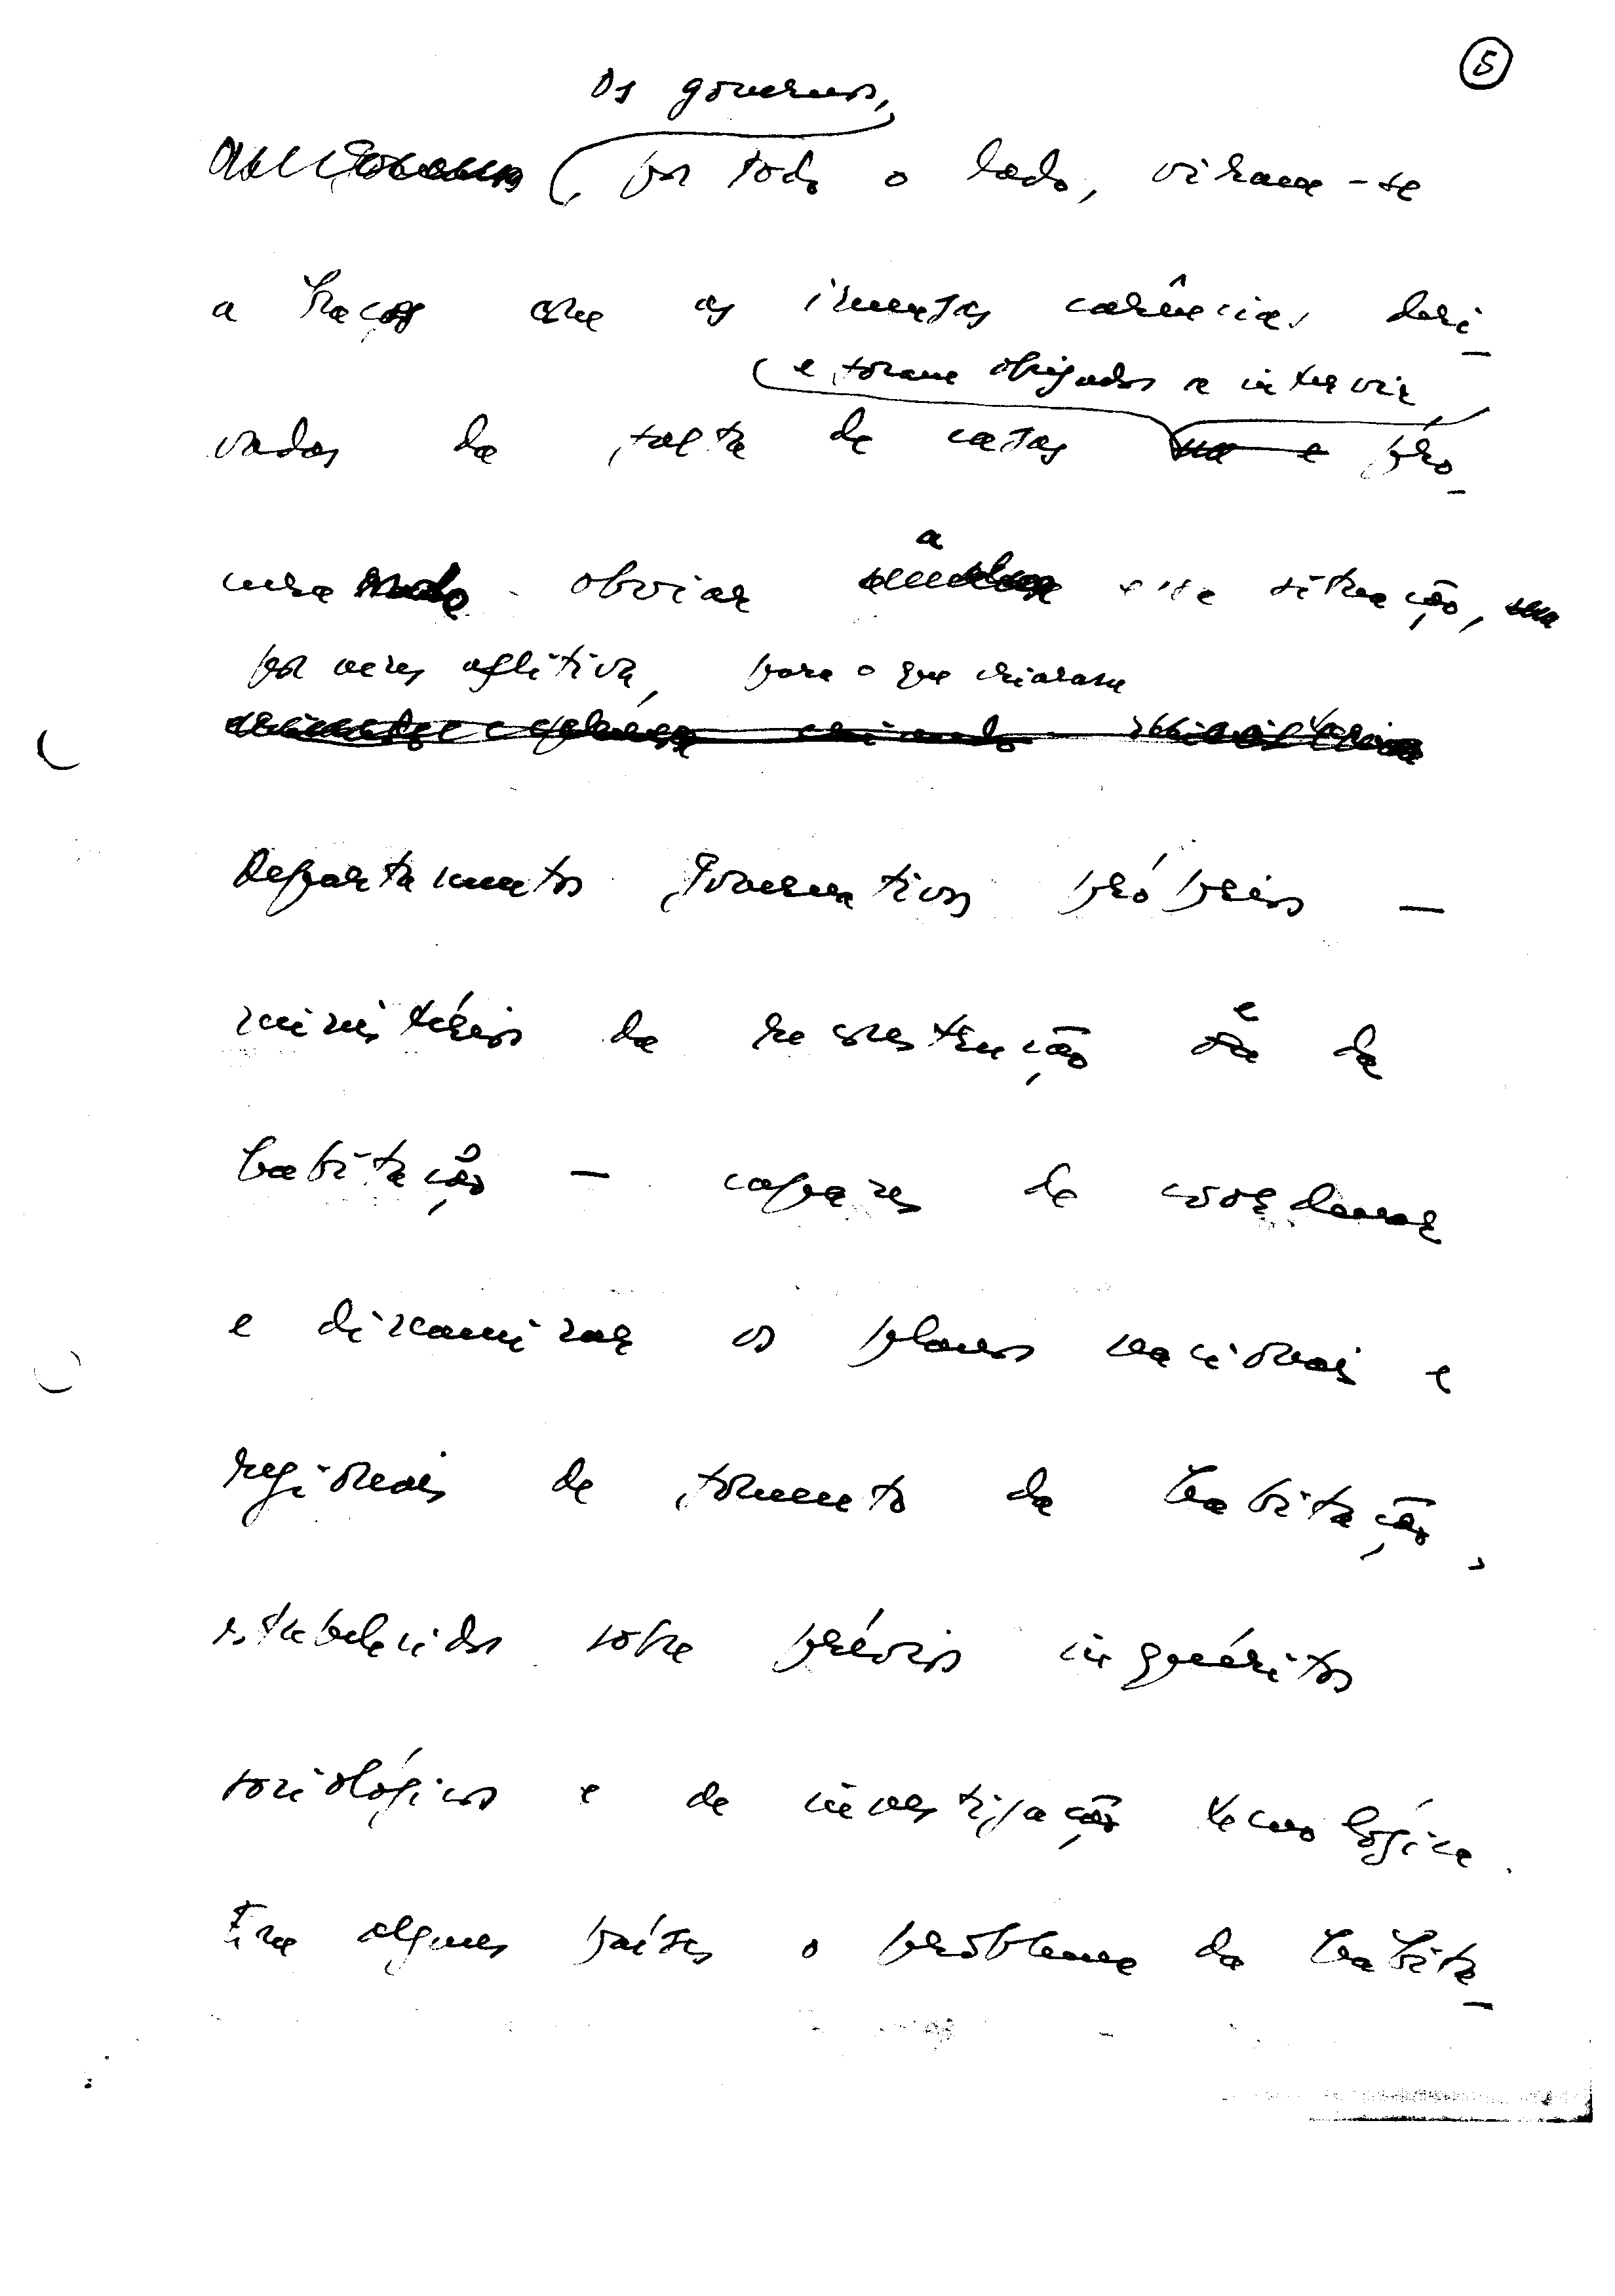 5
Os governos,
por todo o lado, viram-se
a braços com as imensas carências deri-
e foram obrigados a intervir
vadas da falta de casas na e pro-
cura obviar a essa situação,
por vezes aflitiva, para o que criaram
Departamentos Governativos próprios —
ministérios da reconstrução e da
habitação — capazes de coordenar
e dinamizar os planos nacionais e
regionais de fomento da habitação,
estabelecidos sobre prévios inquéritos
sociológicos e de investigação tecnológica.
Em alguns países o problema da habita-